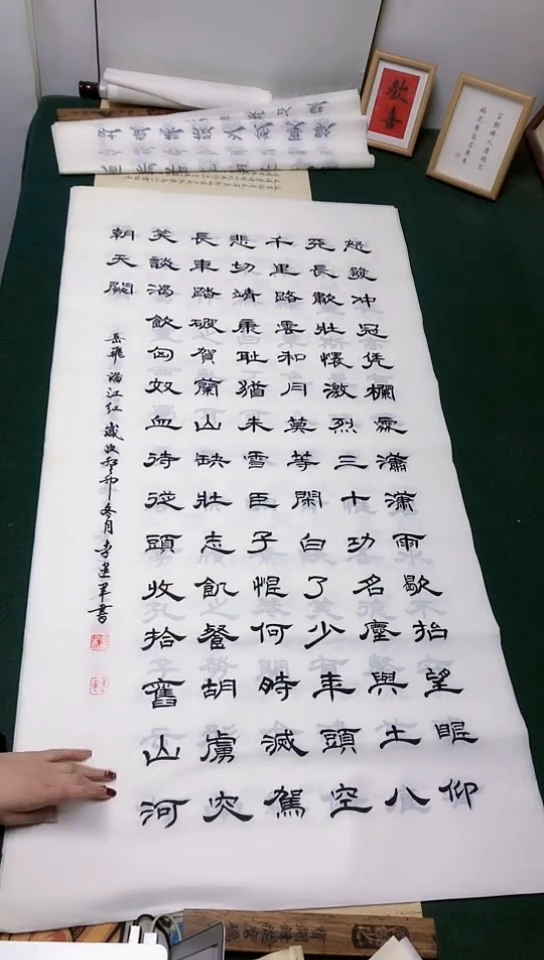 怒發冲冠凭欄處瀟瀟雨歇抬望眼仰
天長歗壯懷激烈三十功名塵與土八
千里路雲和月莫等閑白了少年頭空
悲切靖康恥猶未雪臣子恨何時滅駕
長車踏破賀蘭山缺壯志飢餐胡虜肉
笑談渴飲匈奴血待從頭收拾舊山河
朝天闕
岳飛 滿江紅 歲次癸卯冬月李建軍書
歡喜